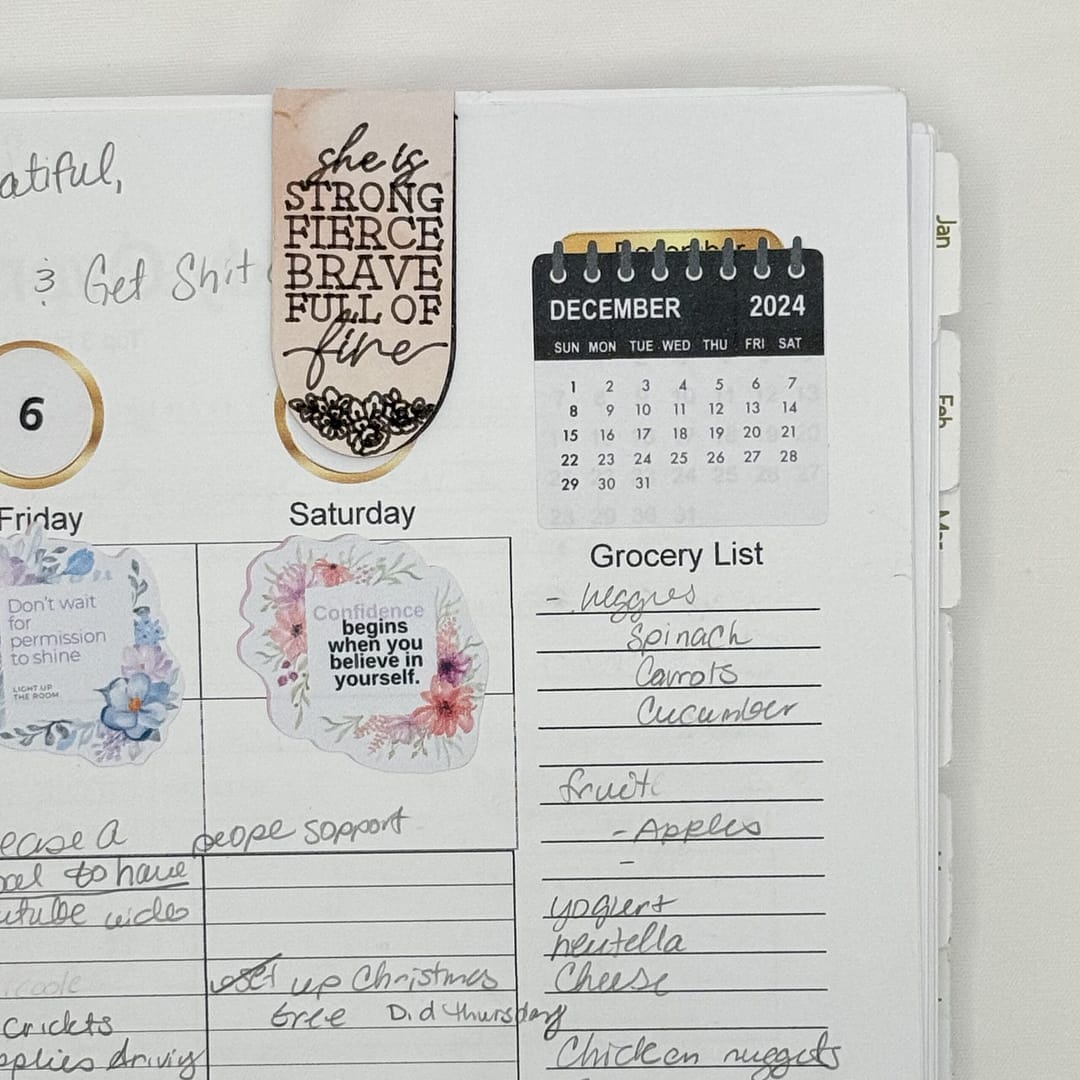 atiful,
& Get Shit
she is
STRONG
FIERCE
BRAVE
FULL OF
fire
December
DECEMBER 2024
SUN MON TUE WED THU FRI SAT
1 2 3 4 5 6 7
8 9 10 11 12 13 14
15 16 17 18 19 20 21
22 23 24 25 26 27 28
29 30 31
Jan
Feb
Mar
6
Friday
Saturday
Don't wait
for
permission
to shine
LIGHT UP
THE ROOM
Confidence
begins
when you
believe in
yourself.
ease a peope support
to have
utube video
set up Christmas
tree Did thursday
crickts
pplies driviy
Grocery List
- veggies
Spinach
Carrots
Cucumber
fruit
- Apples
-
yogurt
neutella
Cheese
Chicken nuggets